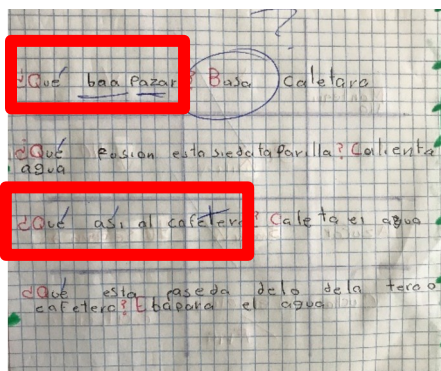 ¿Qué baa pazar? Basa caletara
¿Qué posion esta siedata farilla? Calienta
agua
¿Qué así al cafetero? Caleta el agua
¿Qué esta paseda delo dela tero o
cafetero? Ebapara el agua